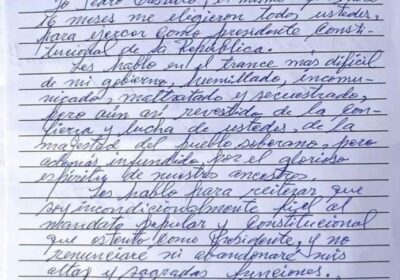 Yo Pedro Castillo, el mismo que hace
16 meses me eligieron todos ustedes,
para ejercer como presidente Consti-
tucional de la República.
Les hablo en el trance más difícil
de mi gobierno, humillado, incomu-
nicado, maltratado y secuestrado,
pero aún así, revestido de la con-
fianza y lucha de ustedes, de la
majestad del pueblo soberano, pero
además, infundido por el glorioso
espíritu de nuestros ancestros.
Les hablo para reiterar que
soy incondicionalmente fiel al
mandato popular y Constitucional
que ostento como Presidente, y no
renunciaré ni abandonaré mis
altas y sagradas funciones.